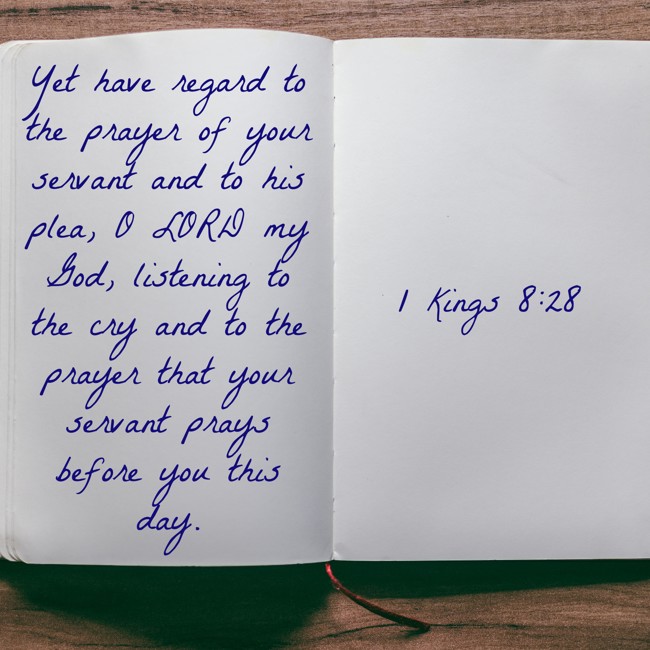 Yet have regard to
the prayer of your
servant and to his
plea, O LORD my
God, listening to
the cry and to the
prayer that your
servant prays
before you this
day.
1 Kings 8:28